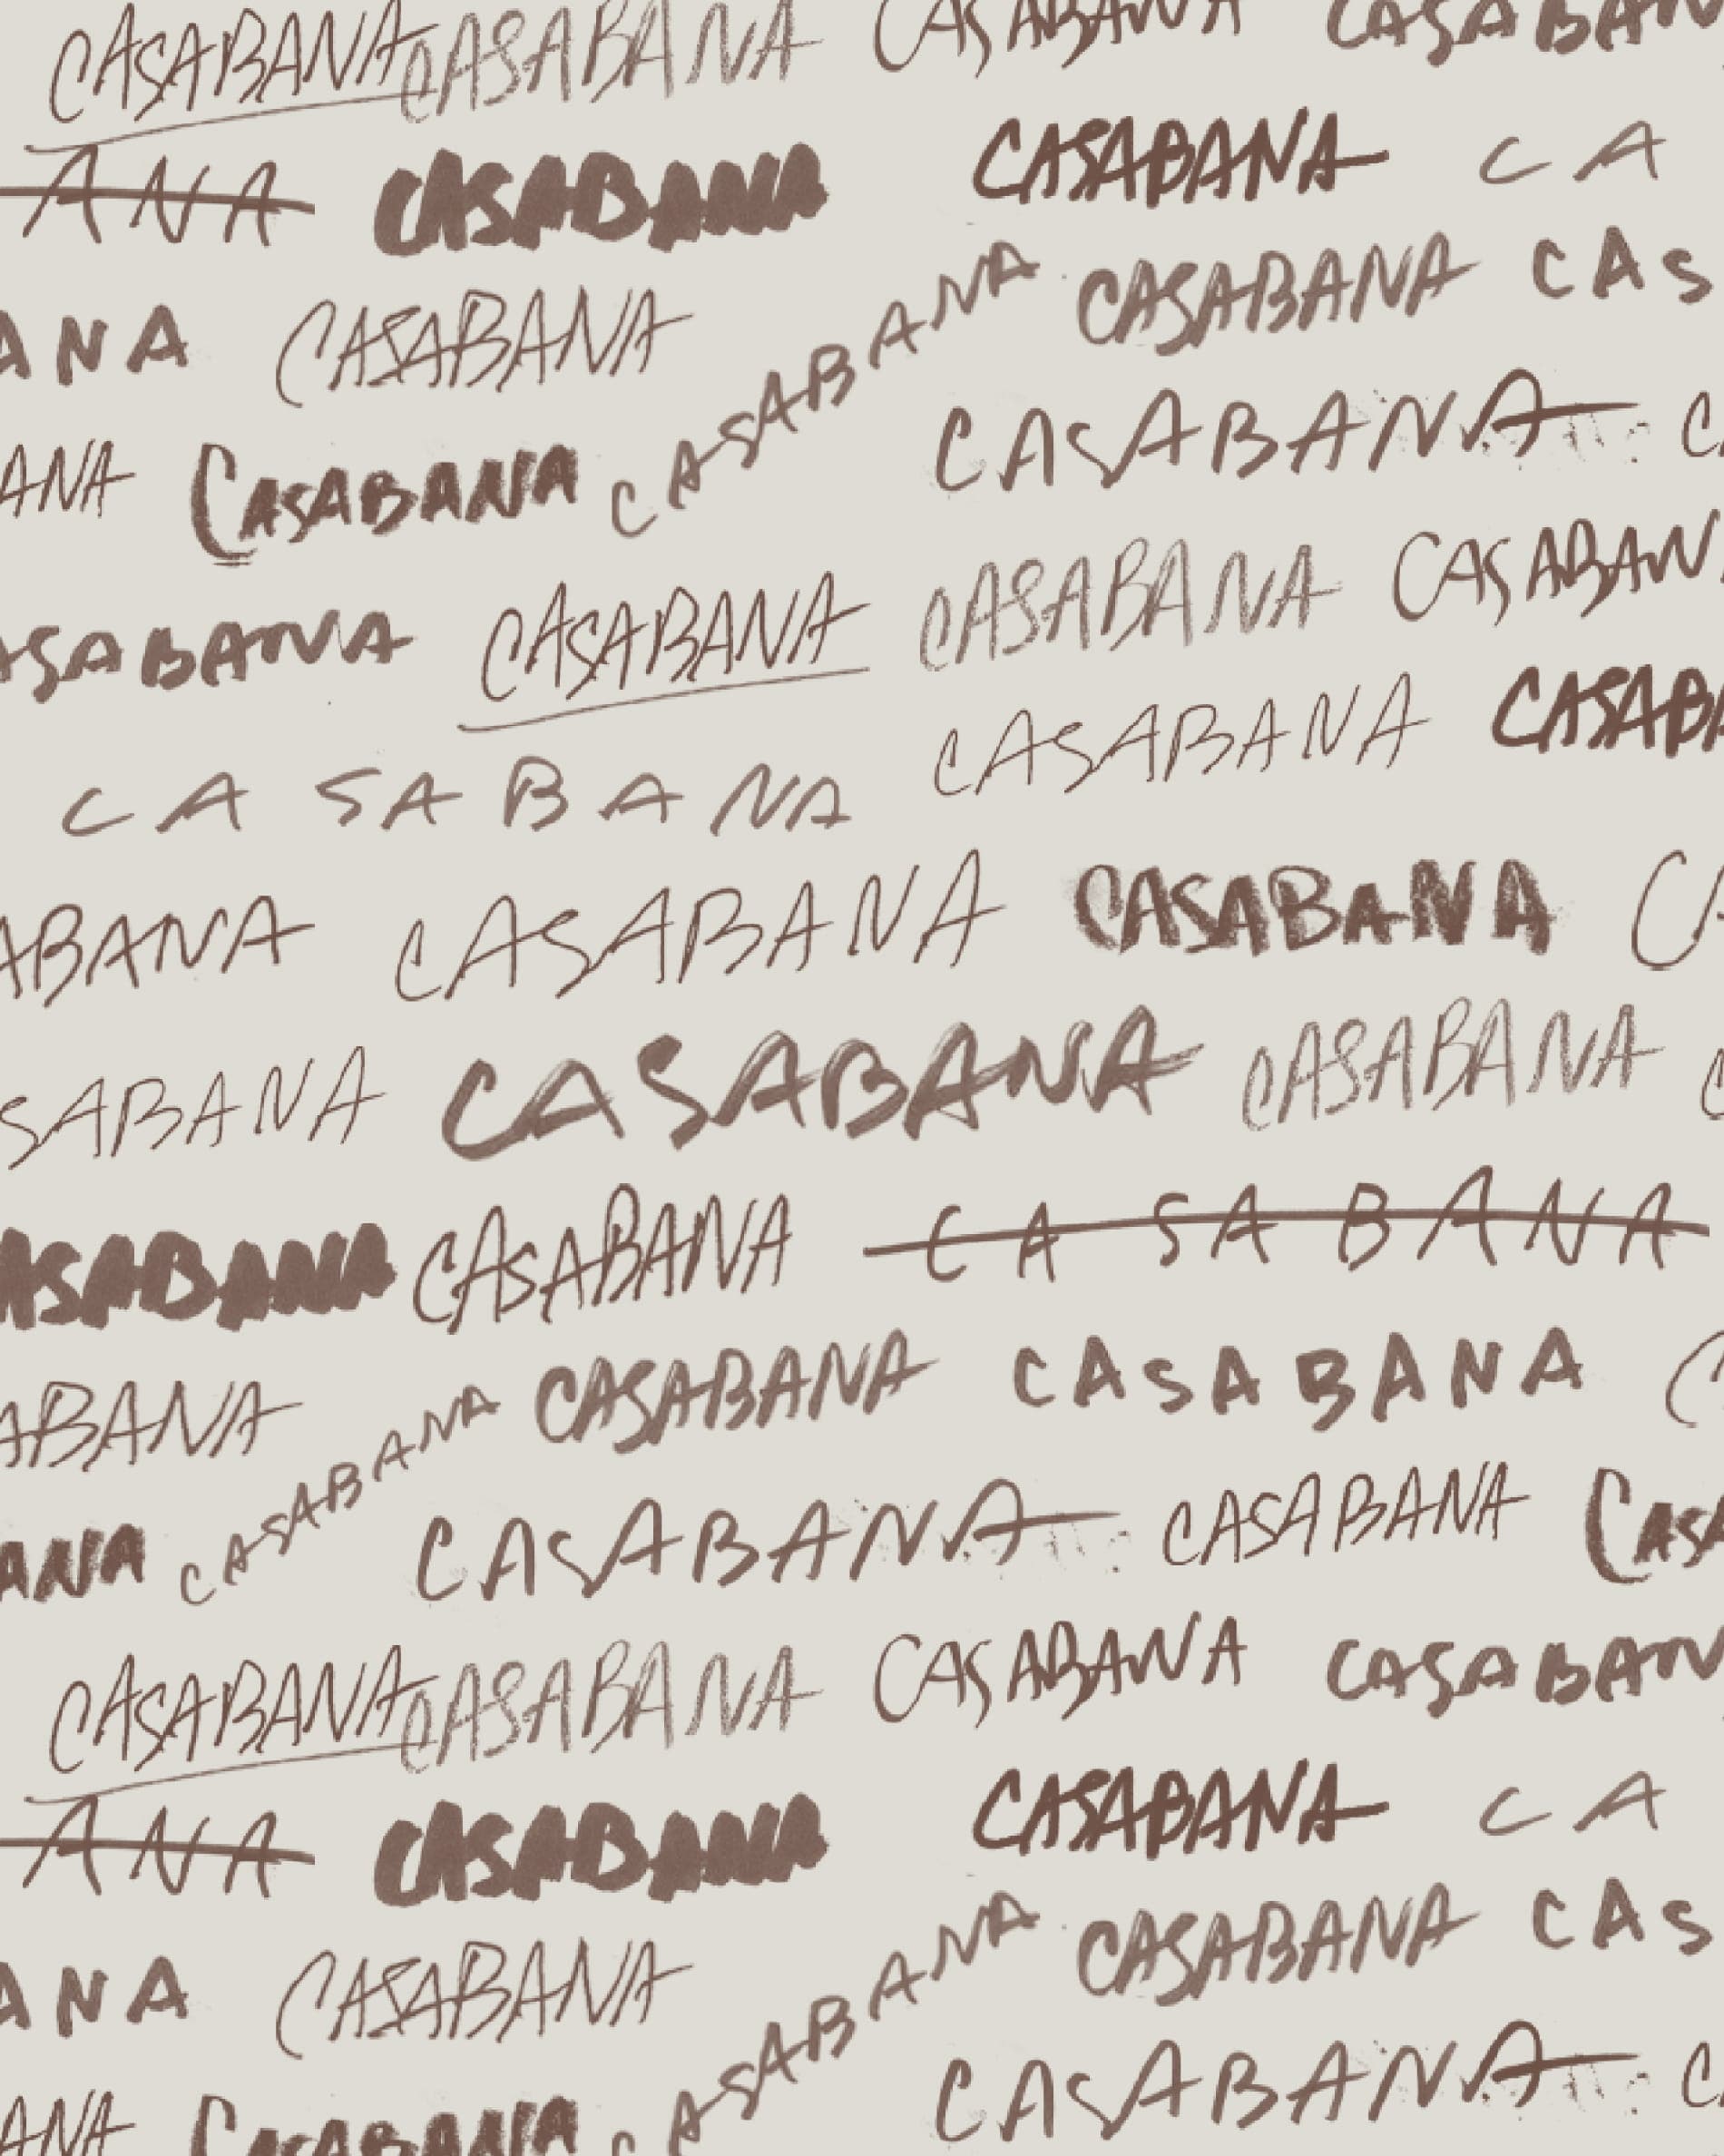 CASABANA CASABANA CASABANA CASABAN
ANA CASABANA CASABANA CA
ANA CASABANA CASABANA CASABANA CAS
ANA CASABANA CASABANA C
ASABANA CASABANA CASABANA CASABAN
CASABANA CASABANA CASABA
ABANA CASABANA CASABANA CA
SABANA CASABANA CASABANA C
ASABANA CASABANA CASABANA
ABANA CASABANA CASABANA CASABANA C
ANA CASABANA CASABANA CASA
CASABANA CASABANA CASABANA CASABAN
ANA CASABANA CASABANA CA
ANA CASABANA CASABANA CASABANA CAS
ANA CASABANA CASABANA C